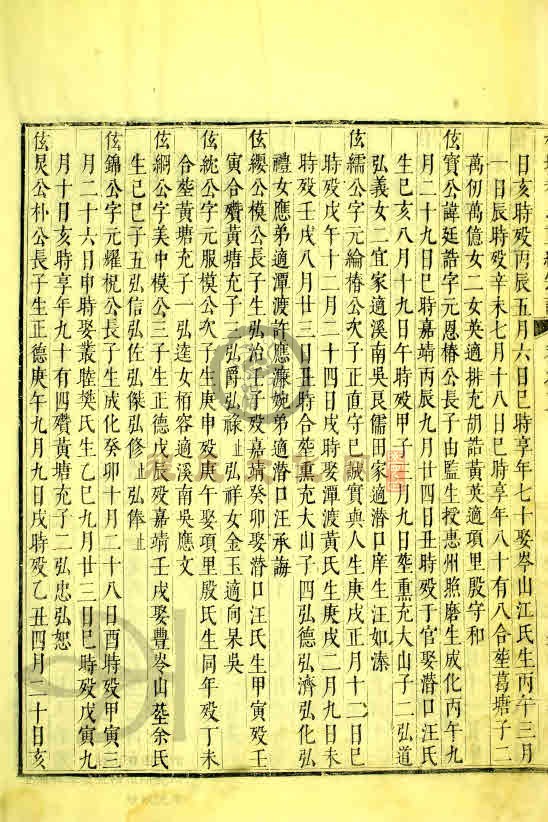 日亥時歿丙辰五月六日巳時享年七十娶岑山江氏生丙午三月
一日辰時歿辛未七月十八日巳時享年八十有八合塟葛塘子二
萬仞萬億女二女英適排充胡誥黃英適項里殷守和
伭寳公諱廷誥字元恩椿公長子由監生授惠州照磨生成化丙午九
月二十九日巳時嘉靖丙辰九月廿四日丑時歿于官娶潛口汪氏
生己亥八月十九日午時歿甲子三月九日塟熏充大山子二弘道
弘義女二宜家適溪南吳良儒田家適潛口庠生汪如溱
伭繻公字元綸椿公次子正直守己誠實與人生庚戌正月十二日巳
時歿戊午十二月二十四日戌時娶潭渡黃氏生庚戌二月九日未
時歿壬戌八月廿三日丑時合塟熏充大山子四弘德弘濟弘化弘
禮女應弟適潭渡許應濂婉弟適潛口汪承誨
伭纓公模公長子生弘治壬子歿嘉靖癸卯娶潛口汪氏生甲寅歿壬
寅合殯黃塘充子三弘爵弘祿止弘祥女金玉適向杲吳
伭統公字元服模公次子生庚申歿庚午娶項里殷氏生同年歿丁未
合塟黃塘充子一弘逵女栢容適溪南吳應文
伭綱公字美中模公三子生正德戊辰歿嘉靖壬戌娶豐岑山塟余氏
生己巳子五弘信弘佐弘傑弘修止弘俸止
伭錦公字元耀柷公長子生成化癸卯十月二十八日酉時歿甲寅三
月二十六日申時娶叢睦樊氏生乙巳九月廿三日巳時歿戊寅九
月十日亥時享年九十有四殯黃塘充子二弘忠弘恕
伭炅公朴公長子生正德庚午九月九日戌時歿乙丑四月二十日亥